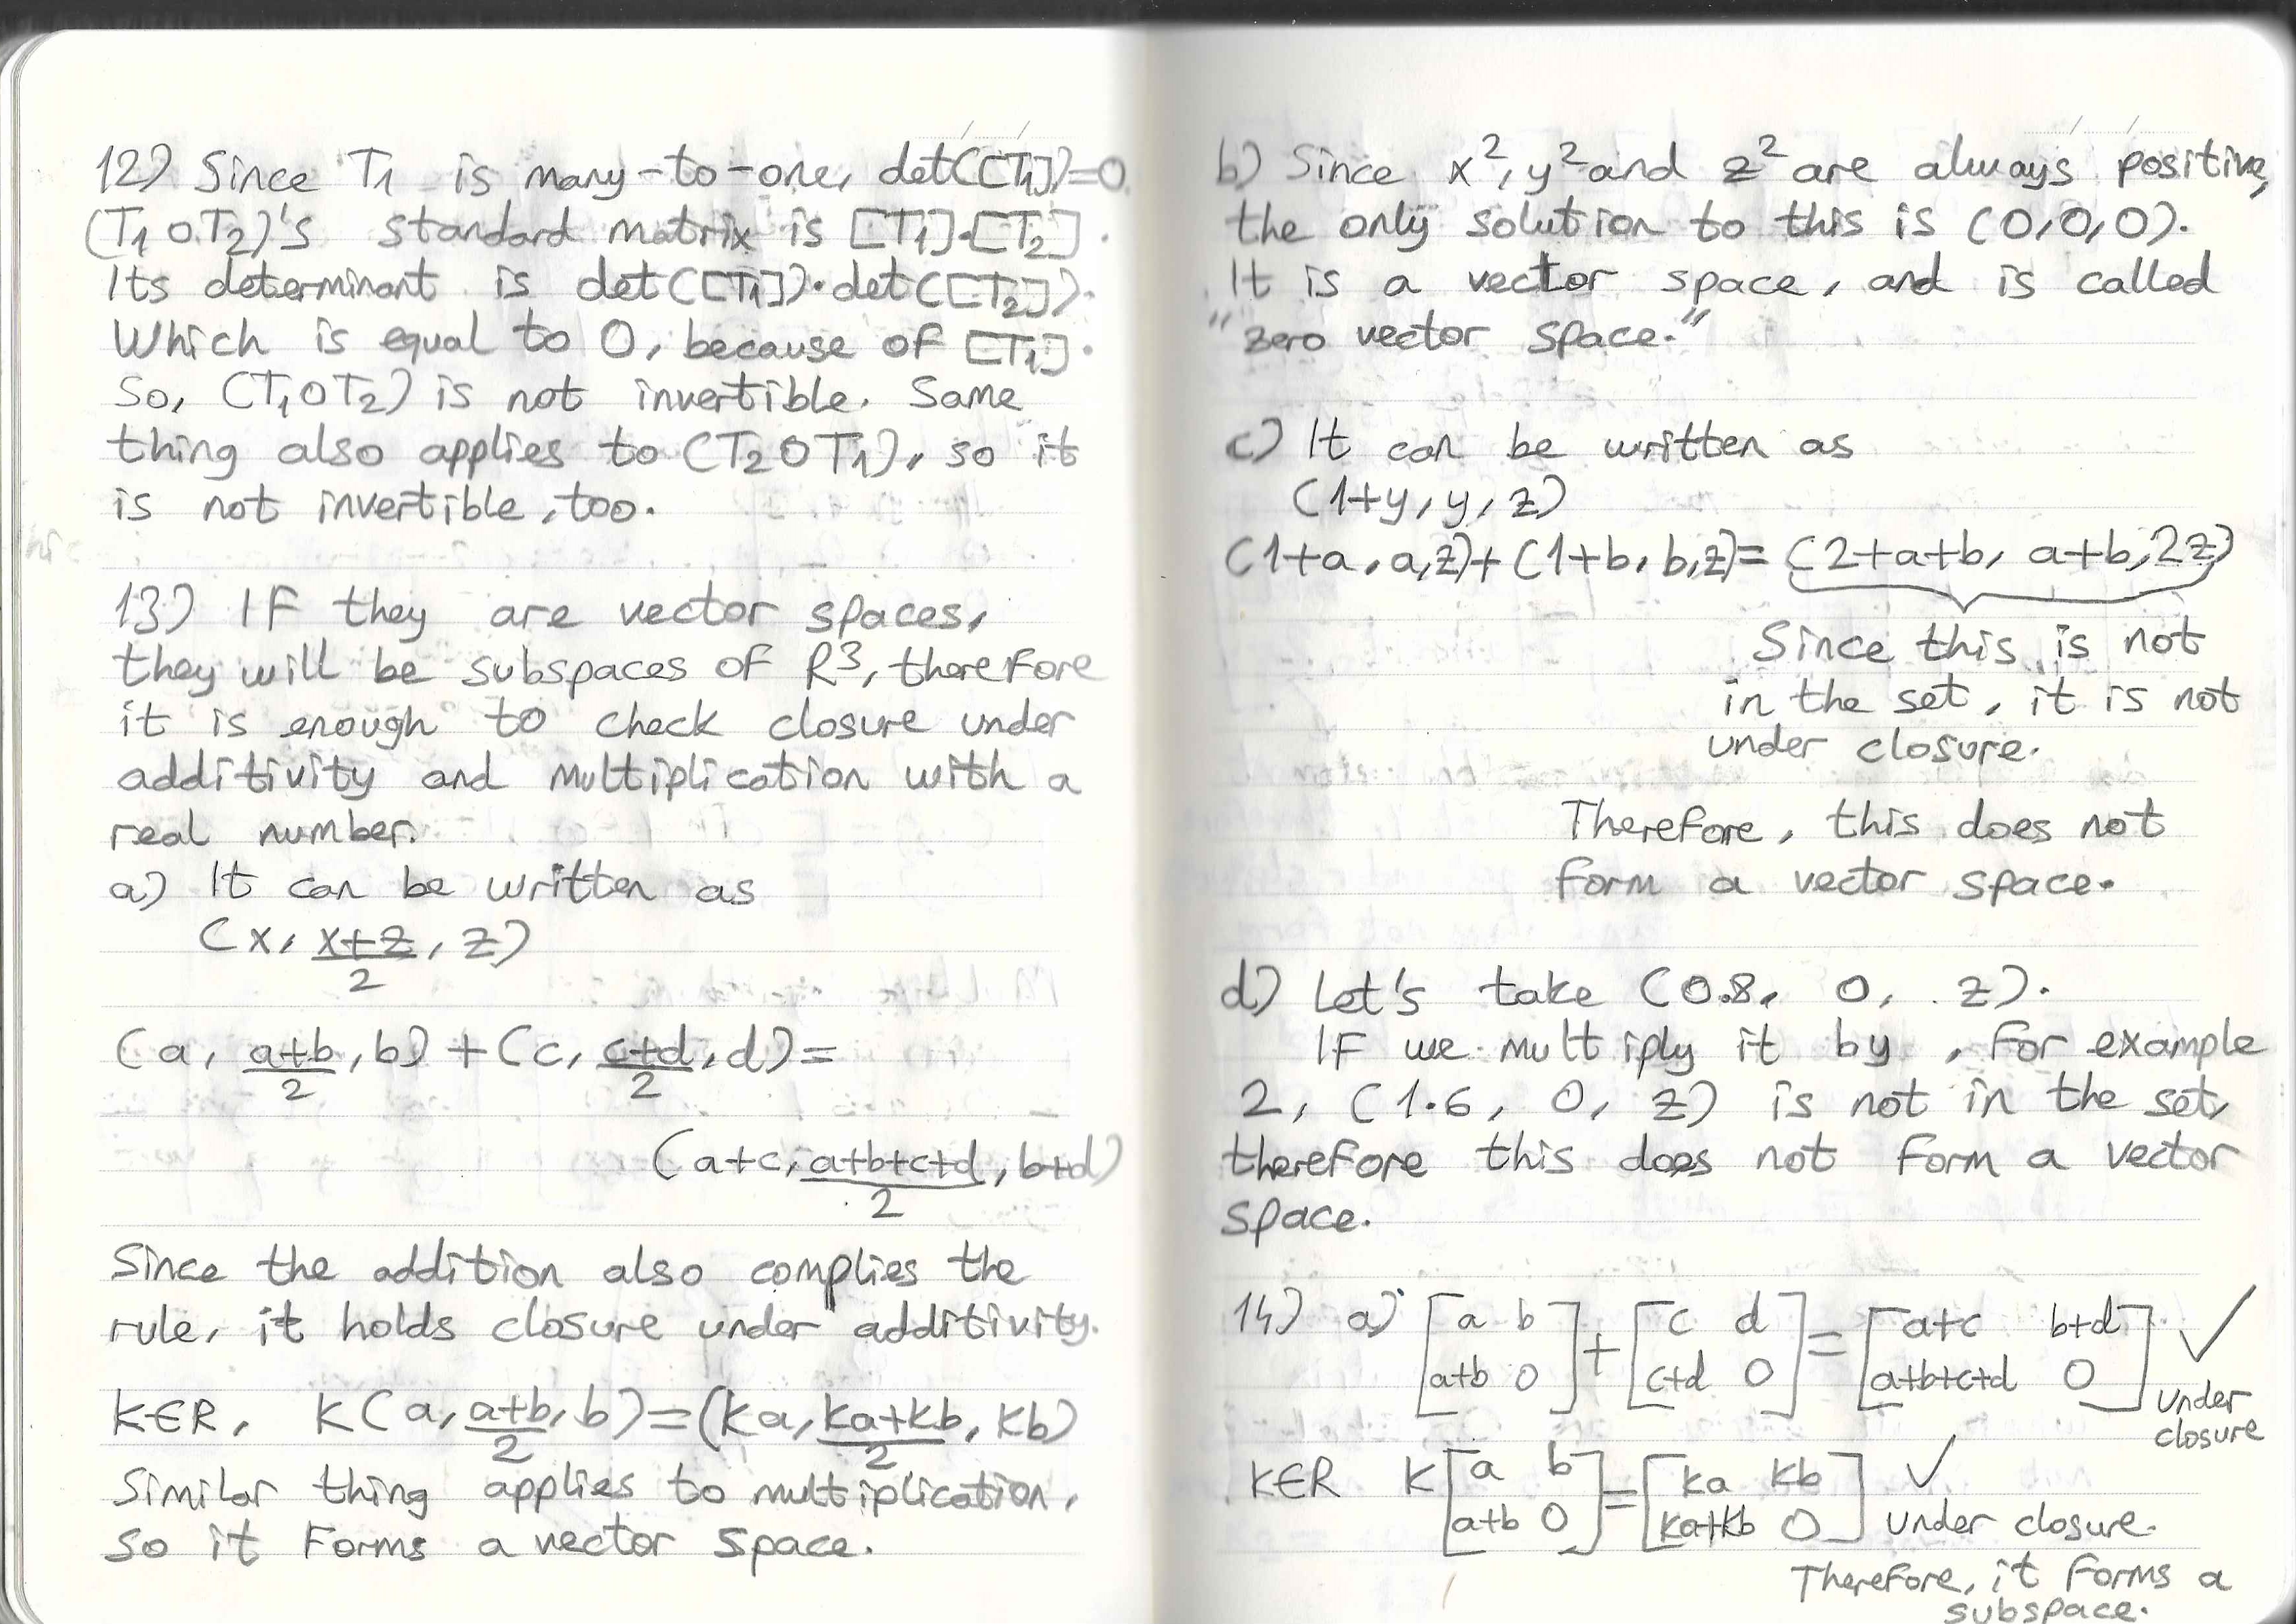 12) Since T1 is many-to-one, det([T1])=0
(T1 o T2)'s standard matrix is [T1]·[T2].
Its determinant is det([T1])·det([T2]).
Which is equal to 0, because of [T1].
So, (T1 o T2) is not invertible. Same
thing also applies to (T2 o T1), so it
is not invertible, too.
13) If they are vector spaces,
they will be subspaces of R³, therefore
it is enough to check closure under
additivity and multiplication with a
real number.
a) It can be written as
(x, (x+z)/2, z)
(a, (a+b)/2, b) + (c, (c+d)/2, d) =
(a+c, (a+b+c+d)/2, b+d)
Since the addition also complies the
rule, it holds closure under additivity.
k∈R, k(a, (a+b)/2, b) = (ka, (ka+kb)/2, kb)
Similar thing applies to multiplication,
so it forms a vector space.
b) Since x², y² and z² are always positive,
the only solution to this is (0,0,0).
It is a vector space, and is called
"zero vector space."
c) It can be written as
(1+y, y, z)
(1+a, a, z) + (1+b, b, z) = (2+a+b, a+b, 2z)
Since this is not
in the set, it is not
under closure.
Therefore, this does not
form a vector space.
d) Let's take (0.8, 0, z).
If we multiply it by, for example
2, (1.6, 0, z) is not in the set,
therefore this does not form a vector
space.
14) a) [a b; a+b 0] + [c d; c+d 0] = [a+c b+d; a+b+c+d 0] ✓
under
closure
k∈R k[a b; a+b 0] = [ka kb; ka+kb 0] ✓
under closure.
Therefore, it forms a
subspace.